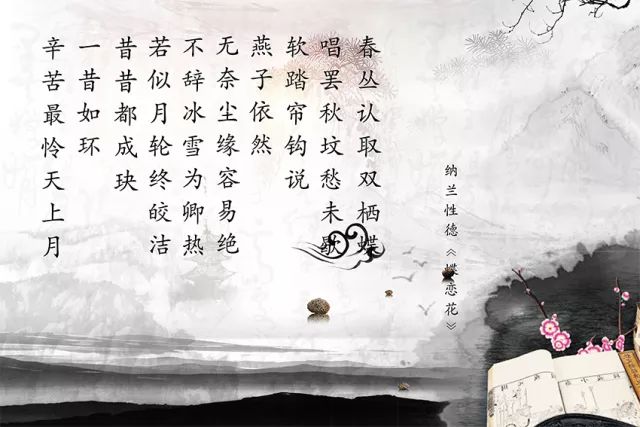 辛苦最怜天上月
一昔如环
昔昔都成玦
若似月轮终皎洁
不辞冰雪为卿热
无奈尘缘容易绝
燕子依然
软踏帘钩说
唱罢秋坟愁未歇
春丛认取双栖蝶
纳兰性德《蝶恋花》